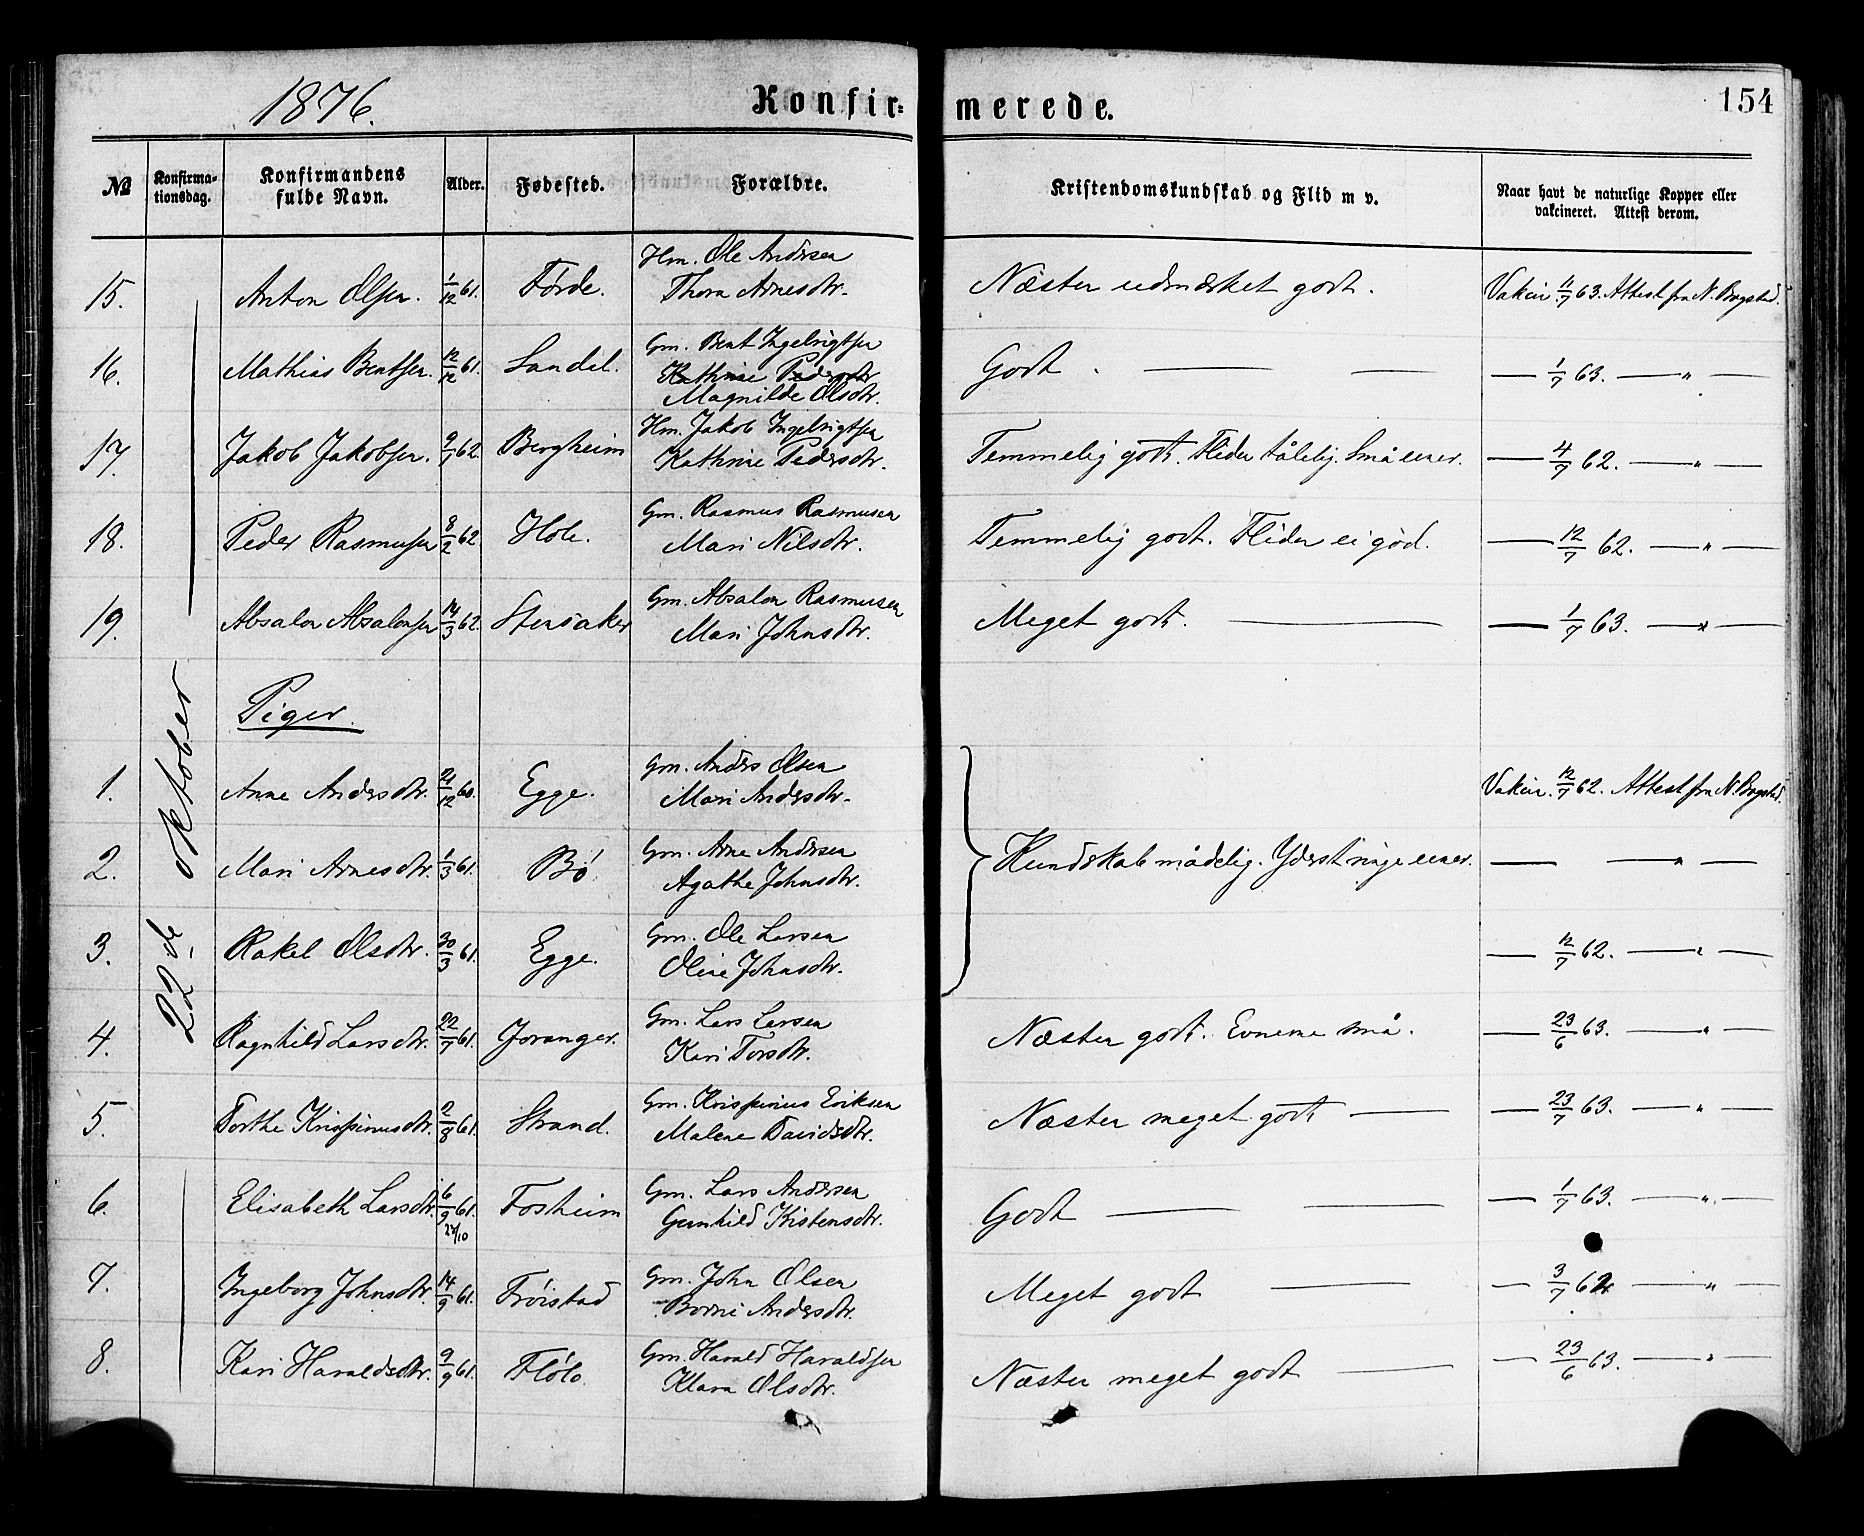 1876.
Konfir-
merede.
154
No
Konfirma-
tionsdag.
Konfirmandens
fulde Navn.
Alder.
Fødested.
Forældre.
Kristendomskundskab og Flid m v.
Naar havt de naturlige Kopper eller
vakcineret. Attest derom.
22de oktober
15. Anton Olsen. 1/12 61. Førde. Hm. Ole Andersen
Thora Arnesdtr. Næsten udmærket godt. Vakcin. 11/7 63. Attest fra N. Bogstad.
16. Mathias Bentsen. 12/12 61. Sandal. Gm. Bent Ingebrigtsen
Kathrine Pedersdtr
Magnilde Olsdtr. Godt. — — — 1/7 63. — " —
17. Jakob Jakobsen. 9/1 62. Bergheim Hm. Jakob Ingebrigtsen
Kathrine Pedersdtr. Temmelig godt. Fliden tålelig. Små evner. — 4/7 62. — " —
18. Peder Rasmusen 8/2 62. Hole. Gm. Rasmus Rasmusen
Mari Nilsdtr. Temmelig godt. Fliden ei god. — 12/7 62. — " —
19. Absalon Absalonsen 14/3 62. Stensaker Gm. Absalon Rasmusen
Mari Johnsdtr. Meget godt. — — 1/7 63. — " —
Piger.
1. Anne Andersdtr. 21/12 60. Egge. Gm. Anders Olsen
Mari Andersdtr. Vakcin. 12/7 62. Attest fra N. Bogstad.
2. Mari Arnesdtr. 1/3 61. Bø. Gm. Arne Andersen
Agathe Johnsdtr. Kundskab mådelig. Yderst ringe evner. — — " —
3. Rakel Olsdtr. 30/3 61. Egge. Gm. Ole Larsen
Oline Johnsdtr. — 12/7 62. — " —
4. Ragnhild Larsdtr. 22/7 61. Joranger. Gm. Lars Larsen
Kari Torsdtr. Næsten godt. Evnerne små. — 23/6 63. — " —
5. Dorthe Krispinusdtr. 2/8 61. Strand. Gm. Krispinus Eriksen
Malene Davidsdtr. Næsten meget godt — — 23/7 63. — " —
6. Elisabeth Larsdtr. 6/9 61. 24/10 Fosheim Gm. Lars Andersen
Gunhild Kristensdtr. Godt — — — 1/7 63. — " —
7. Ingeborg Johnsdtr. 14/9 61. Frøistad Gm. John Olsen
Borni Andersdtr. Meget godt — — 3/7 62 — " —
8. Kari Haraldsdtr. 9/9 61. Flølo. Gm. Harald Haraldsen
Klara Olsdtr. Næsten meget godt — — 23/6 63. — " —